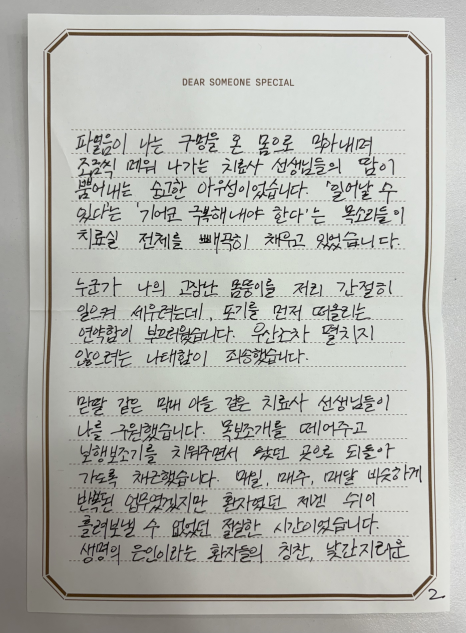 DEAR SOMEONE SPECIAL
파열음이 나는 구멍을 온 몸으로 막아내며
조금씩 메워 나가는 치료사 선생님들의 땀이
뿜어내는 숭고한 아우성이었습니다. '일어날 수
있다'는 '기어코 극복해내야 한다'는 목소리들이
치료실 전체를 빼곡히 채우고 있었습니다.
누군가 나의 고장난 몸뚱이를 저리 간절히
일으켜 세우려는데, 포기를 먼저 떠올리는
연약함이 부끄러웠습니다. 우산조차 펼치지
않으려는 나태함이 죄송했습니다.
맏딸 같은 막내 아들 같은 치료사 선생님들이
나를 구원했습니다. 목보조개를 떼어주고
보행보조기를 치워주면서 왔던 곳으로 되돌아
가도록 채근했습니다. 매일, 매주, 매달 비슷하게
반복된 업무였겠지만 환자였던 제겐 쉬이
흘려보낼 수 없었던 절실한 시간이었습니다.
생명의 은인이라는 환자들의 칭찬, 낯간지러운
2